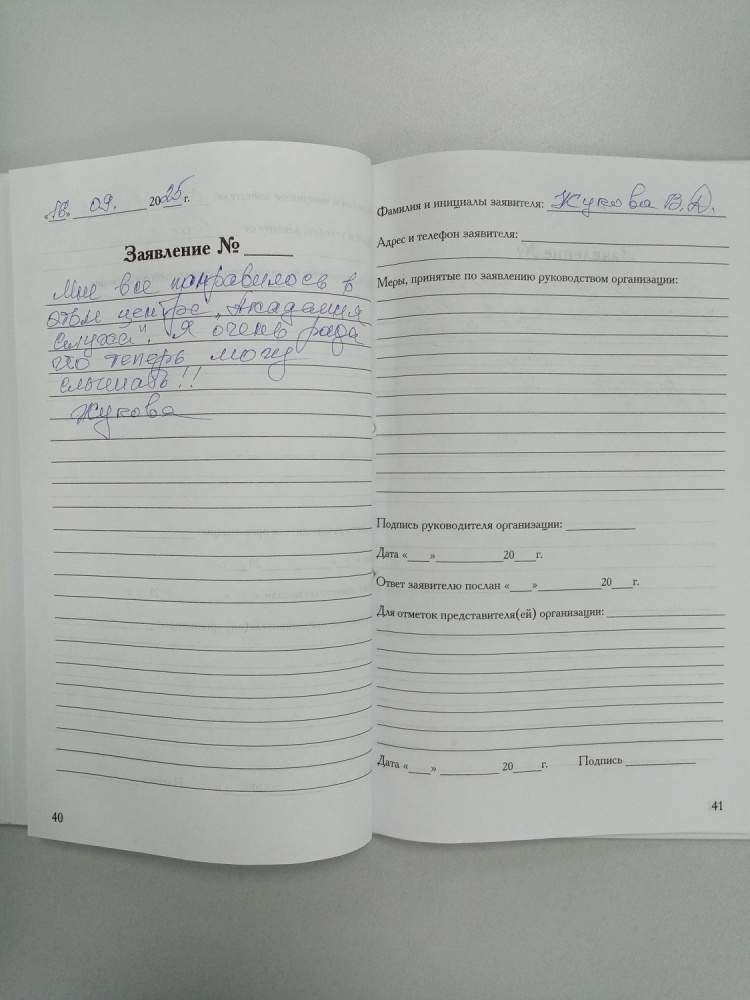 18. 09. 2025 г.
Заявление № ____
Мне все понравилось в
этом центре „Академия
Слуха". Я очень рада
что теперь могу
слышать!!
Жукова
40
Фамилия и инициалы заявителя: Жукова В.Д.
Адрес и телефон заявителя:
Меры, принятые по заявлению руководством организации:
Подпись руководителя организации: ____
Дата «___»____20___г.
Ответ заявителю послан «___»____20___г.
Для отметок представителя(ей) организации:
Дата «___» ____ 20___г. Подпись ____
41